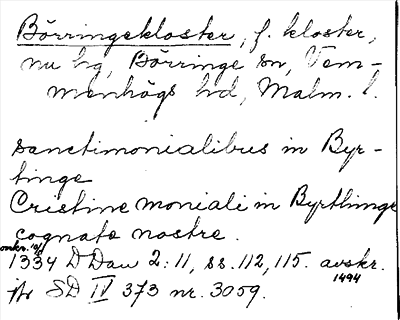 Börringekloster, f. kloster,
nu hg, Börringe sn, Vem-
menhögs hd, Malm. l.
sanctimonialibus in Byr-
tinge
Cristine moniali in Byrthinge
cognate nostre.
omkr. 10/1
1334 D Dan 2:11, ss. 112, 115. avskr.
1494
jfr SD IV 373 nr. 3059.